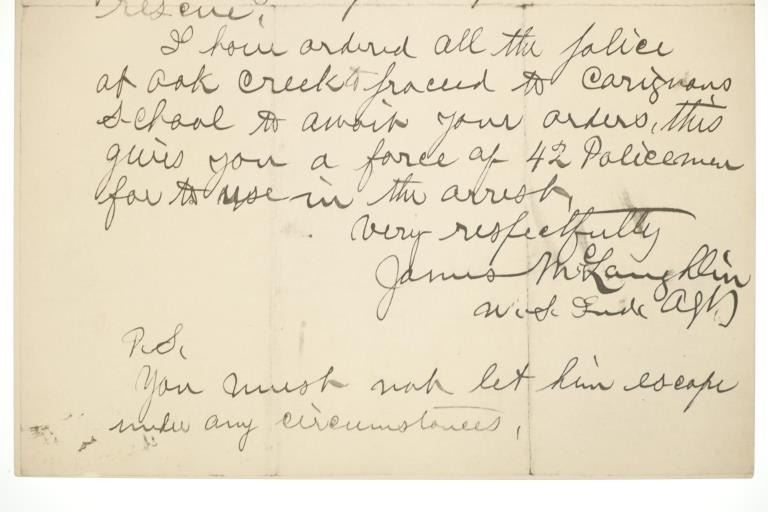 rescue,
I have ordered all the police
at Oak Creek to proceed to Carignans
School to await your orders, this
gives you a force of 42 Policemen
for to use in the arrest,
Very respectfully
James McLaughlin
U.S. Ind. Agt.
P.S.
You must not let him escape
under any circumstances,